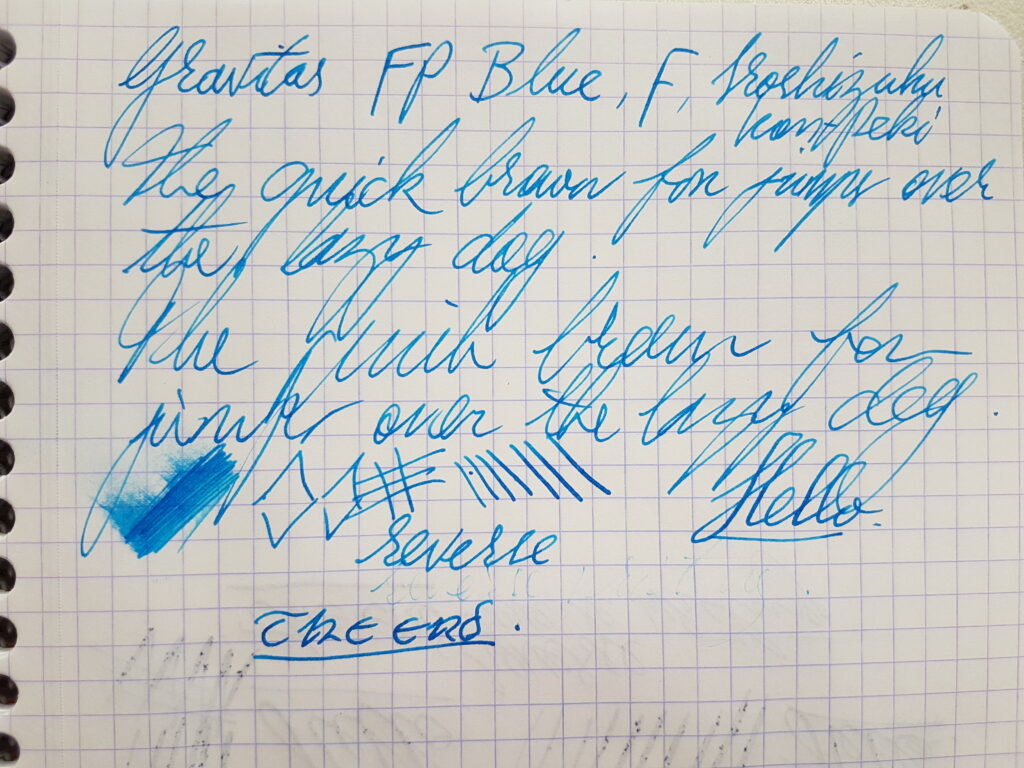 Gravitas FP Blue, F, Iroshizuku
kon-peki
the quick brown fox jumps over
the lazy dog.
the quick brown fox
jumps over the lazy dog.
Hello.
reverse
THE END.